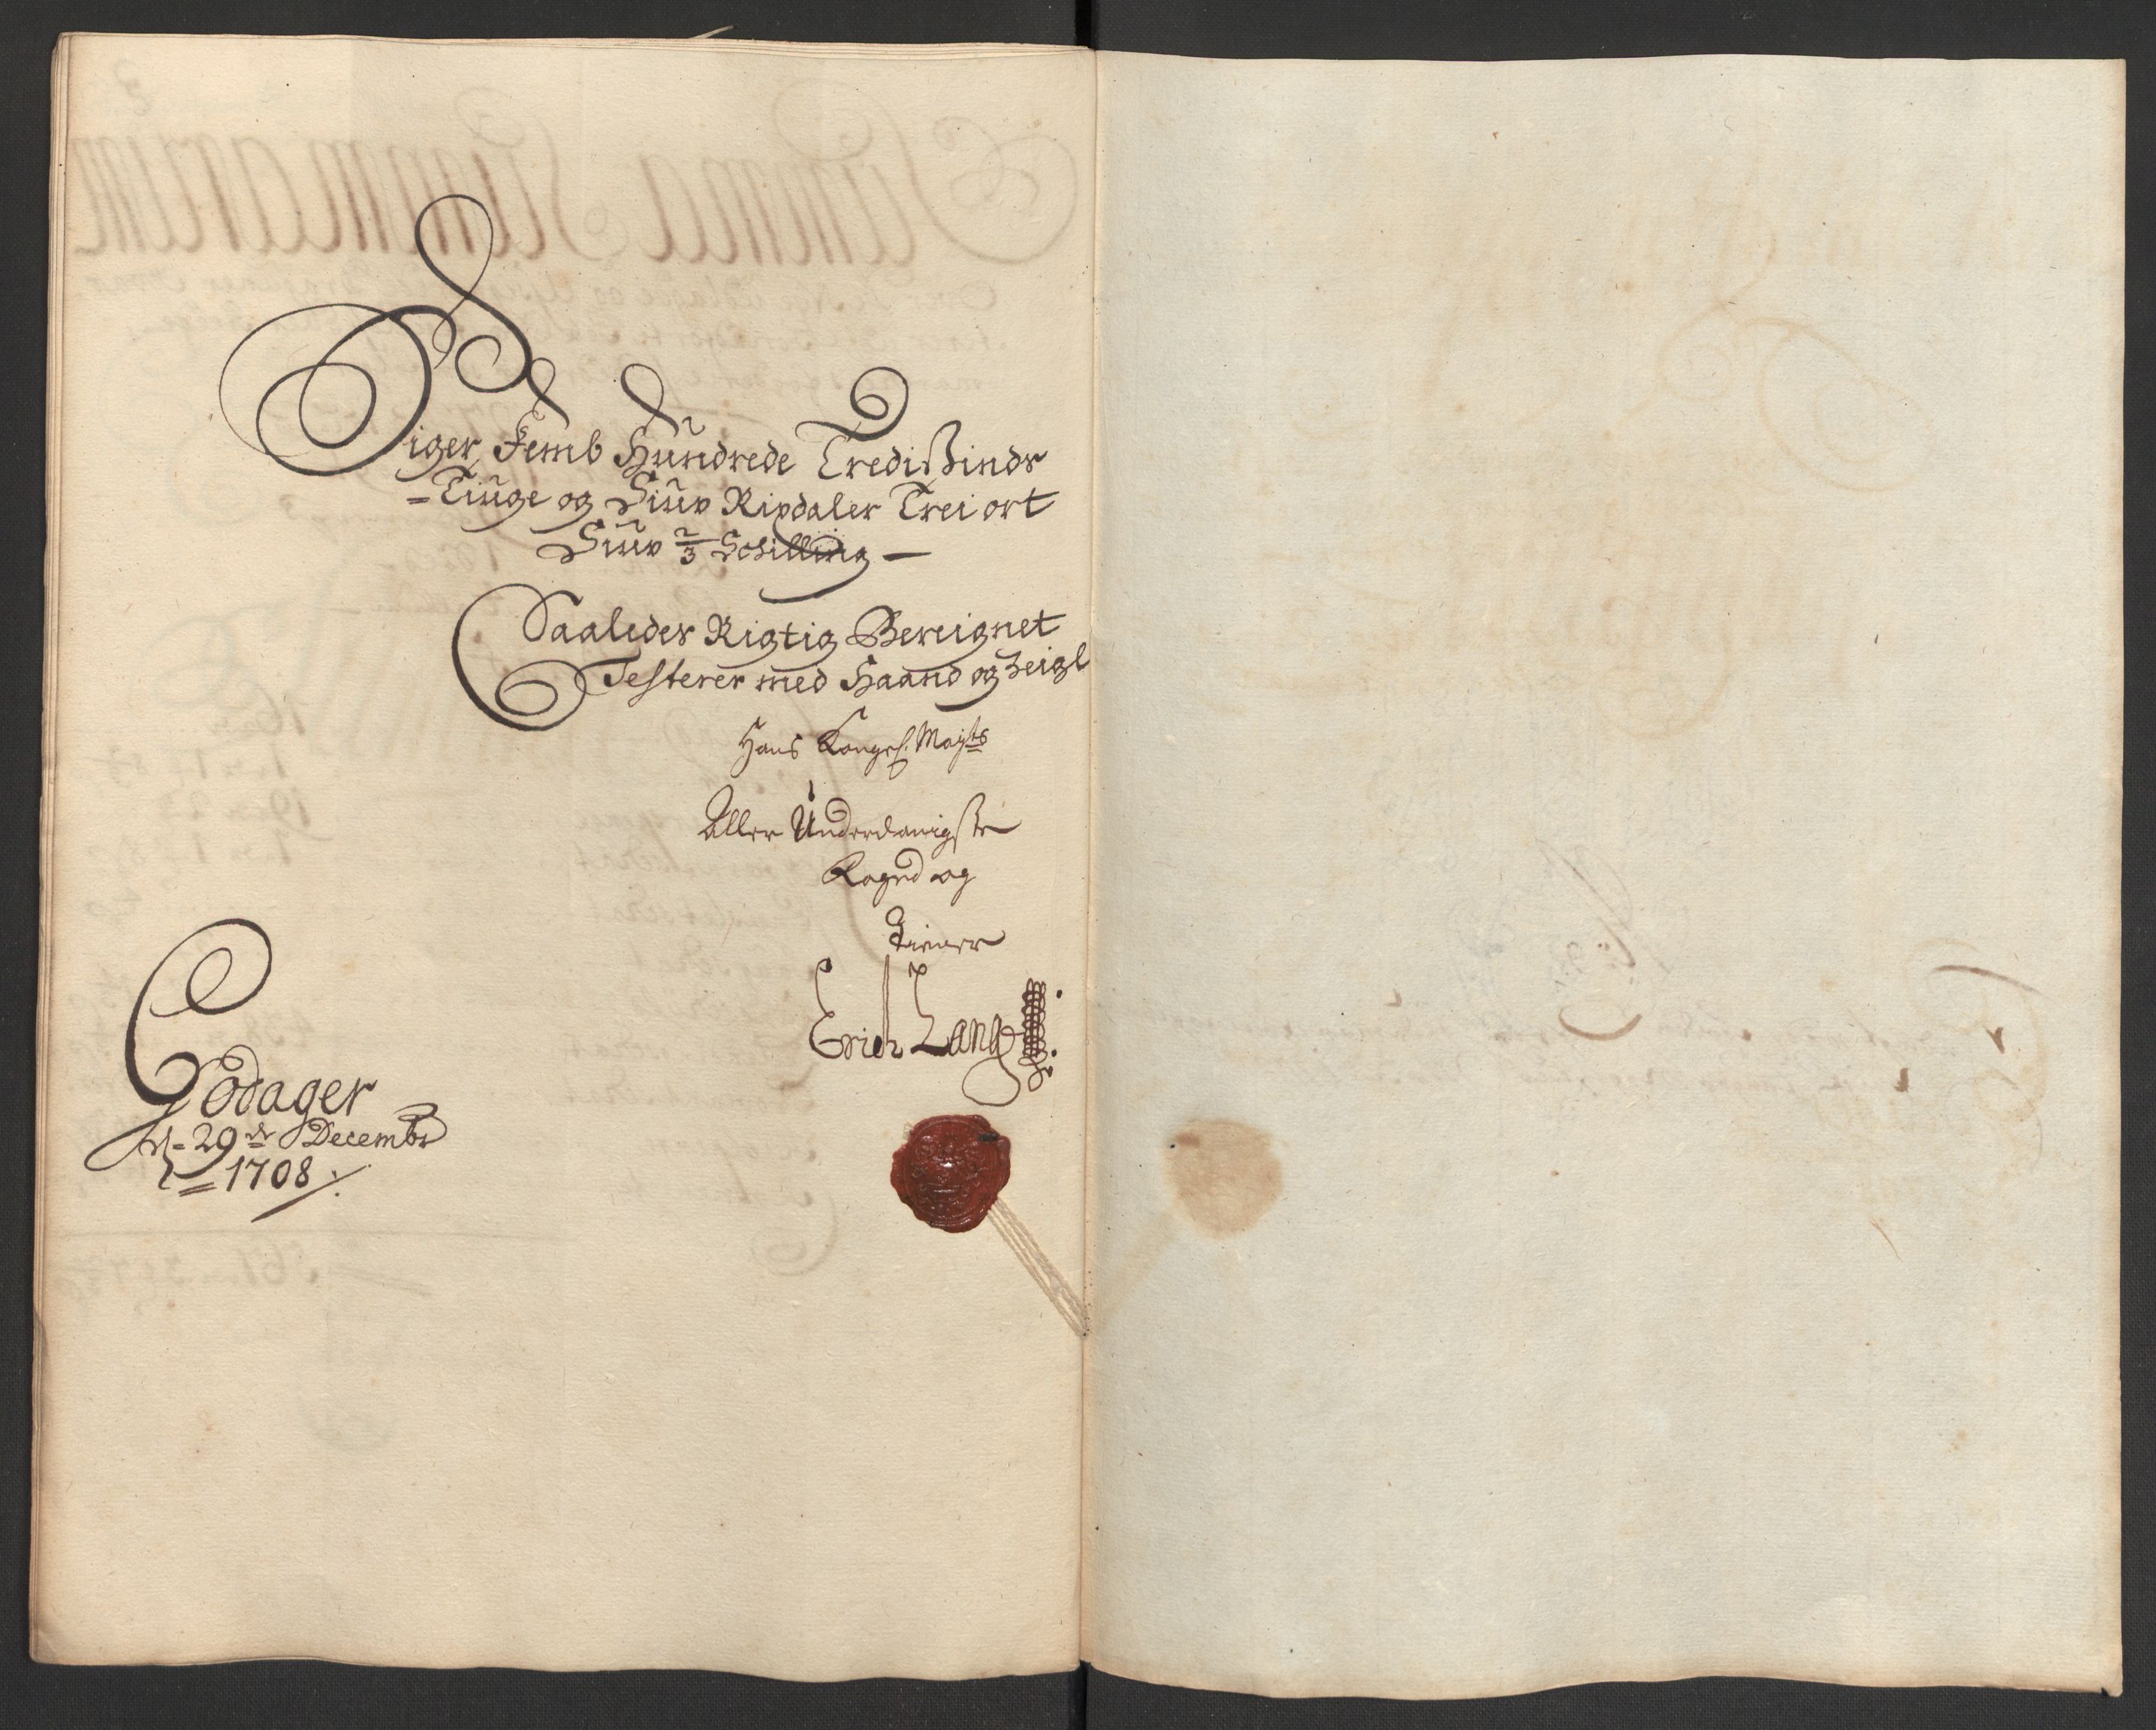 Siger, Femb Hundrede Tredisßinds
=Tiuge og Siuv Rixdaler Trei ort
Siuv 2/3 Schilling —
Saaledes Rigtig Bereignet
Testerer med Haand og Zeigl
Hans Kongel: Mayts
Aller Underdanigste
og
Tiener
Erich Lang
Godager
d - 29de Decembr
= 1708 /.